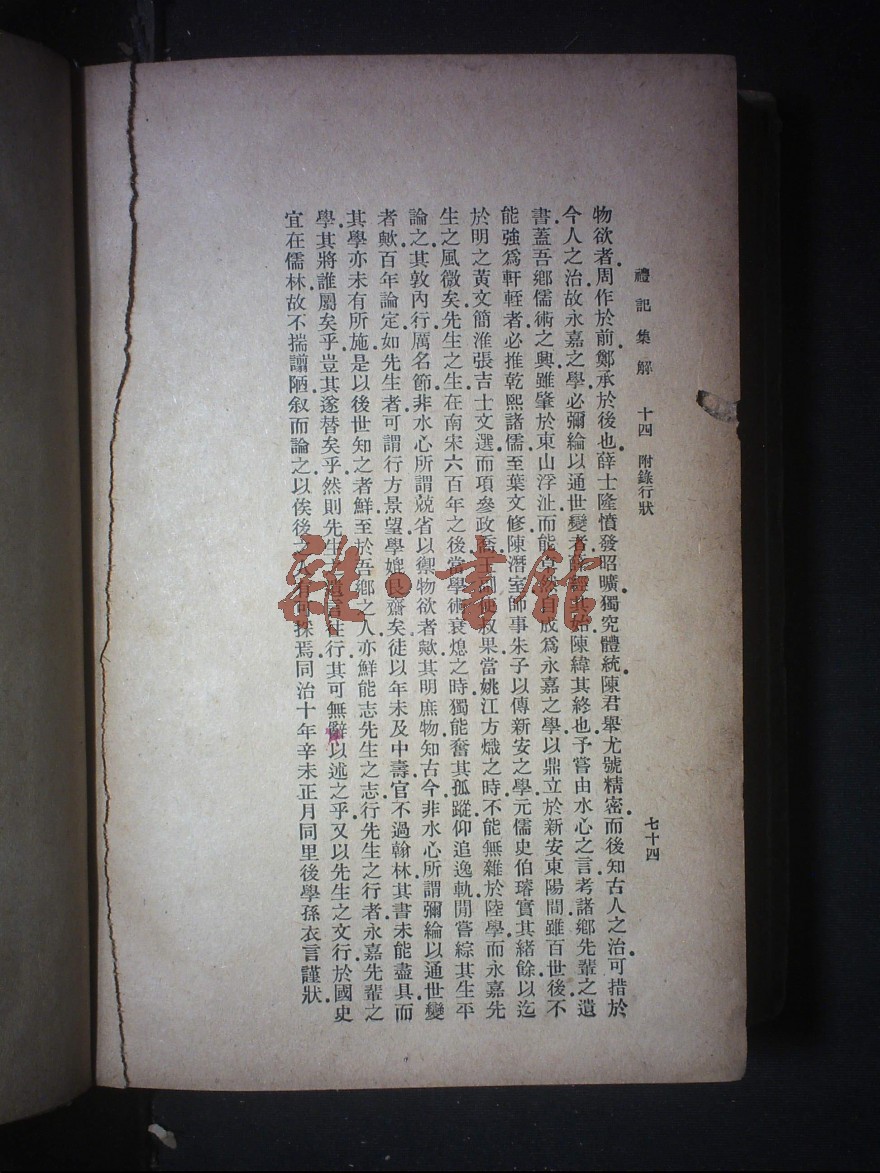 禮記集解 十四 附錄行狀 七十四
物欲者周作於前鄭承於後也薛士隆憤發昭曠獨究體統陳君舉尤號精密而後知古人之治可措於
今人之治故永嘉之學必彌綸以通世變者薛經其始陳緯其終也予嘗由水心之言考諸鄉先輩之遺
書蓋吾鄉儒術之興雖肇於東山浮沚而能自成為永嘉之學以鼎立於新安東陽間雖百世後不
能強爲軒輊者必推乾熙諸儒至葉文修陳潛室師事朱子以傳新安之學元儒史伯璿實其緒餘以迄
於明之黃文簡淮張吉士文選而項參政喬王副使叔果當姚江方熾之時不能無雜於陸學而永嘉先
生之風微矣先生之生在南宋六百年之後當學術衰熄之時獨能奮其孤蹤仰追逸軌閒嘗綜其生平
論之其敦內行厲名節非水心所謂兢省以禦物欲者歟其明庶物知古今非水心所謂彌綸以通世變
者歟百年論定如先生者可謂行方景望學媲艮齋矣徒以年未及中壽官不過翰林其書未能盡具而
其學亦未有所施是以後世知之者鮮至於吾鄉之人亦鮮能志先生之志行先生之行者永嘉先輩之
學其將誰屬矣乎豈其遂替矣乎然則先生之遺言往行其可無辭以述之乎又以先生之文行於國史
宜在儒林故不揣謭陋叙而論之以俟後之人有可採焉同治十年辛未正月同里後學孫衣言謹狀
雜·書館